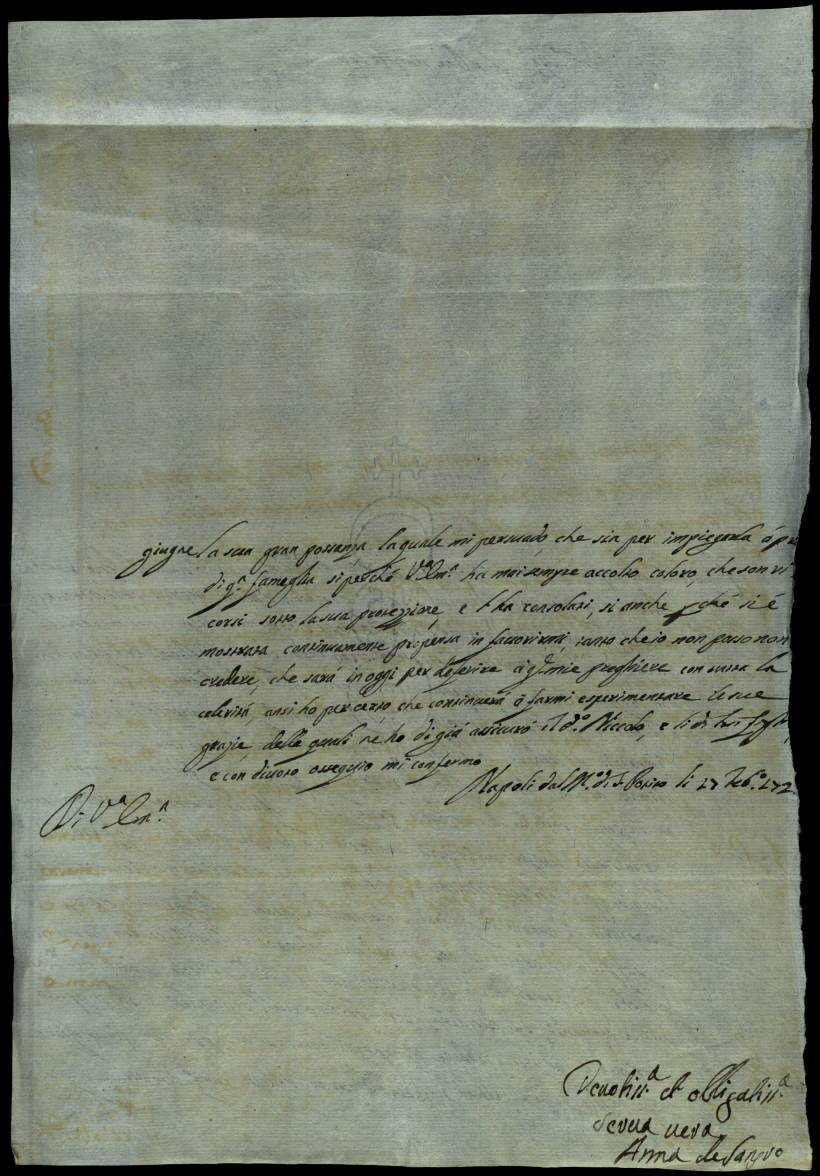 giugne la sua gran possanza, la quale mi persuado, che sia per impiegarla á
di q.ª fameglia si perche V.ª Em.ª ha mai sempre accolto coloro, che son
corsi sotto la sua protezzione, e li ha consolati, si anche ché si é
mostrata continuamente propensa in favorirmi, tanto che io non posso non
credere, che sará in oggi per deferire á q.e mie preghiere con tutta la
celeritá, anzi ho per certo che continuerá á farmi esperimentare le sue
grazie, delle quali ne ho di giá assicuró il d.º Niccolo, e li di lui
e con divoto ossequio mi confermo
Napoli dal M.º di S. Potito li 17 Feb.º 172
Di V.ª Em.ª
Devotiss.ª et obligatiss.ª
serva vera
Anna de Sangro